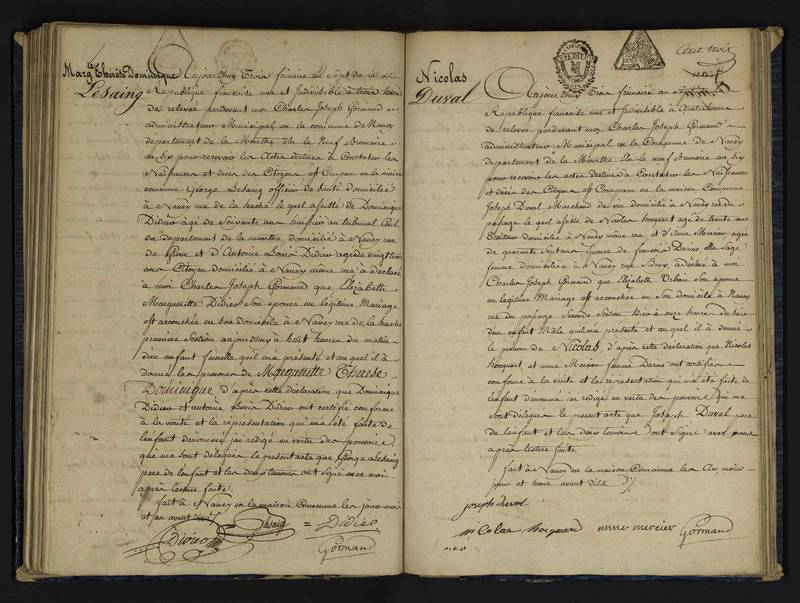 Margte Therese Dominique
Lesaing
aujourdhuy Trois frimaire an Sept de la
Republique francaise une et Indivisible à trois heures
de relevée pardevant moi Charles Joseph Gormand
administrateur Municipal en la commune de Nancy
departement de la Meurthe élu le Neuf Brumaire
an Six pour recevoir les Actes destinés à Constater les
Naissances et décès des Citoyens est Comparu en la maison
commune George Lesaing officier de santé domicilié
à Nancy rue de la hache le quel assisté de Dominique
Didier agé de Soixante ans huissier au tribunal Civil
du departement de la meurthe domicilié à Nancy rue
de et d'Antoine Louis Didier agé de vingt trois
ans Citoyen domicilié à Nancy même rue a déclaré
à moi Charles Joseph Gormand que Elizabeth
Margueritte Didier Son épouse en légitime Mariage
est accouchée en son domicile à Nancy rue de la hache
premiere Section aujourdhuy à huit heures du matin
d'un enfant femelle quil m'a présenté et au quel il à
donné les prenoms de Margueritte Therese
Dominique d'après cette déclaration que Dominique
Didier et antoine Louis Didier ont certifié conforme
à la vérité et la représentation qui m'a été faite de
l'enfant dénommé j'ai rédigé en vertu des pouvoirs
que me sont délégués le présent acte que George Lesaing
pere de l'enfant et les deux témoins ont signé avec moi
après lecture faite.
fait à Nancy en la maison Commune les jour mois
et an avant dits
Lesaing = Didier
Didier
Gormand
Cent trois
Nicolas
Duval
Aujourdhuy Trois frimaire an
Republique francaise une et Indivisible à Quatre heures
de relevée pardevant moi Charles Joseph Gormand
administrateur Municipal en la Commune de Nancy
departement de la Meurthe Elu le neuf Brumaire an Six
pour recevoir les actes destinés à Constater les Naissances
et décès des Citoyens est Comparu en la maison Commune
Joseph Duval Marchand de vin domicilié à Nancy rue du
passage le quel assisté de Nicolas hocquart agé de trente ans
domicilié à Nancy même rue et d'Anne Mercier agée
de quarante Sept ans Epouse de francois Darius elle Sage
femme domiciliée à Nancy rue Sidney, a déclaré à moi
Charles Joseph Gormand que Elizabeth Son epouse
en légitime Mariage est accouchée en Son domicile à Nancy
rue du passage Seconde Section hier à onze heures du Soir
d'un enfant Mâle quil m'a présenté et au quel il à donné
le prenom de Nicolas d'après cette déclaration que Nicolas
Hocquart et anne Mercier femme Darius ont certifiés
conforme à la vérité et la représentation qui m'a été faite de
l'enfant dénommé j'ai rédigé en vertu des pouvoirs qui me
sont délégués le présent acte que Joseph Duval pere
de l'enfant et les deux témoins ont Signé avec moi
après lecture faite
fait à Nancy en la maison Commune les An, mois
jour et heure avant dits
joseph duval
nicolas hocquard anne mercier Gormand